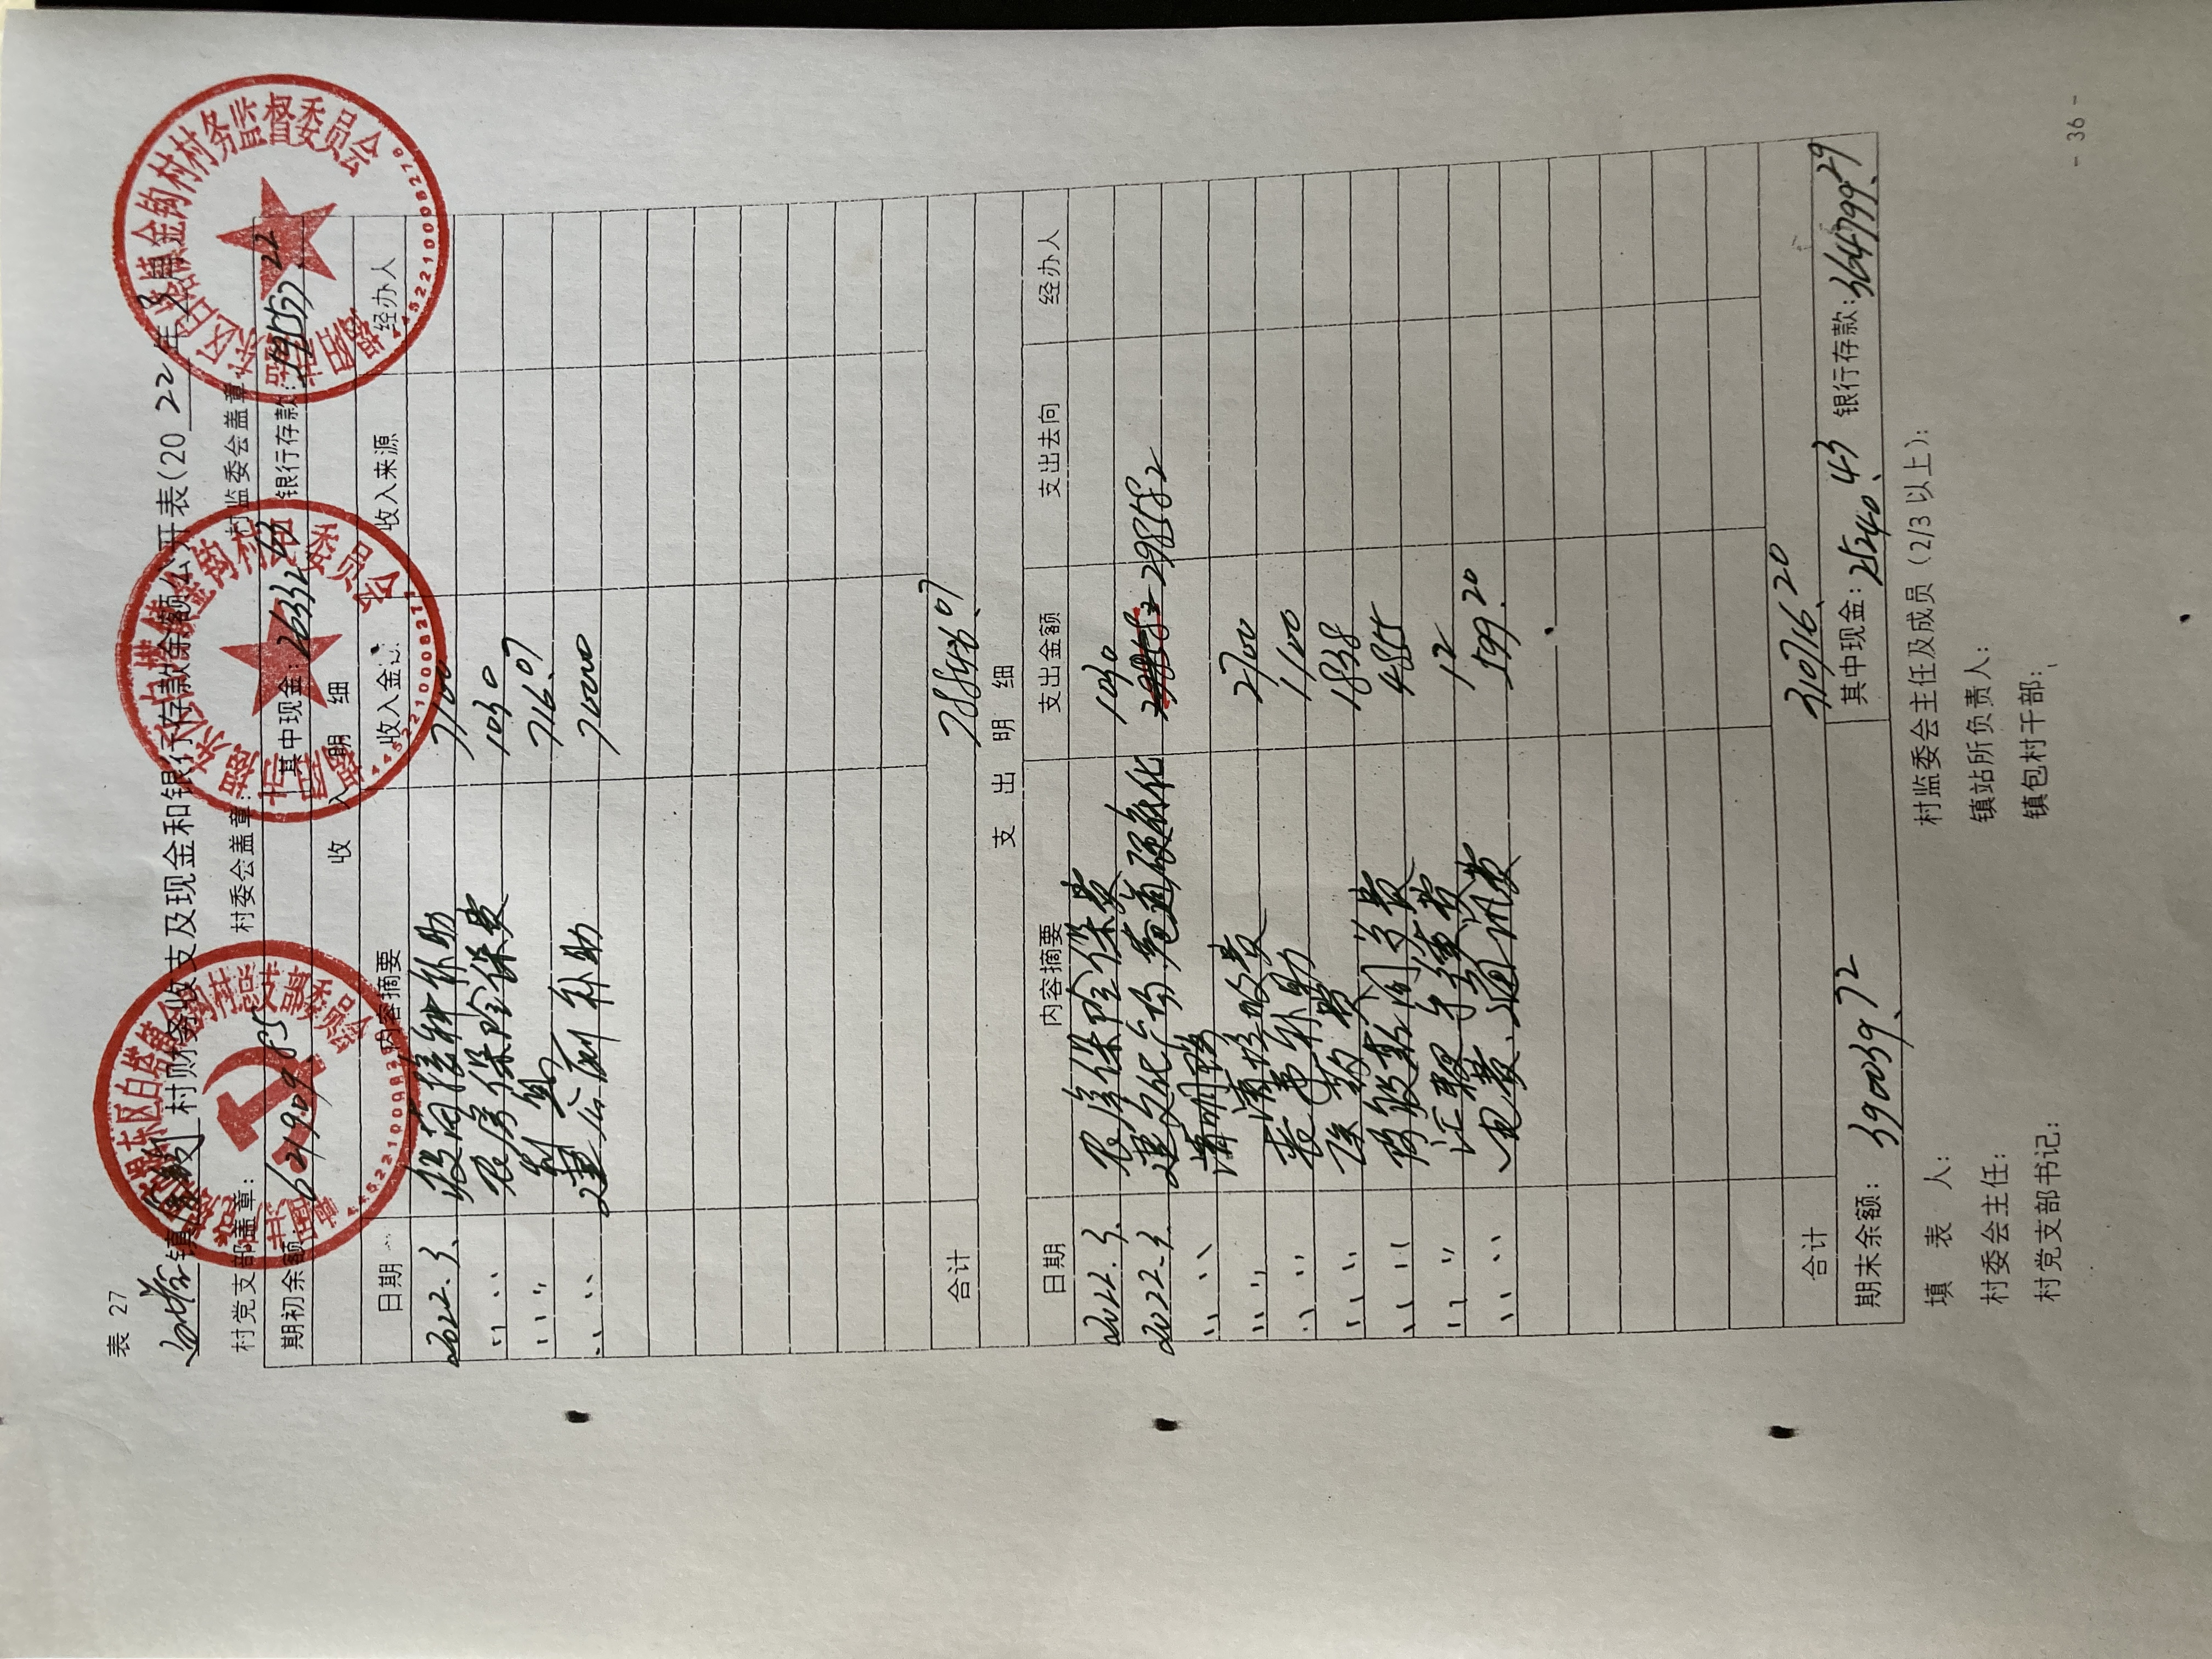 表 27
白塔镇金钩村财务收支及现金和银行存款余额公开表(2022年3
村党支部盖章: 村委会盖章: 村监委会盖章:
期初余额 621909.85 其中现金: 26332.63 银行存款: 595577.22
收 入 明 细
日期 内容摘要 收入金 收入来源 经办人
2022.3. 疫苗接种补助 7100
〃 〃 农房保险保费 1030
〃 〃 利息 716.07
〃 〃 建公厕补助 70000
合计 78846.07
支 出 明 细
日期 内容摘要 支出金额 支出去向 经办人
2022.3. 农房保险保费 1030
2022.3. 建文化广场巷道硬底化 298582
〃 〃 清明
〃 〃 清垃圾费 2700
〃 〃 丧事补助 1100
〃 〃 费 1838
〃 〃 费 4855
〃 〃 手续费 12
〃 〃 电费、通讯费 599.20
合计 310716.20
期末余额: 390039.72 其中现金: 25240.43 银行存款: 364799.29
填 表 人: 村监委会主任及成员(2/3以上):
村委会主任: 镇站所负责人:
村党支部书记: 镇包村干部:
- 36 -